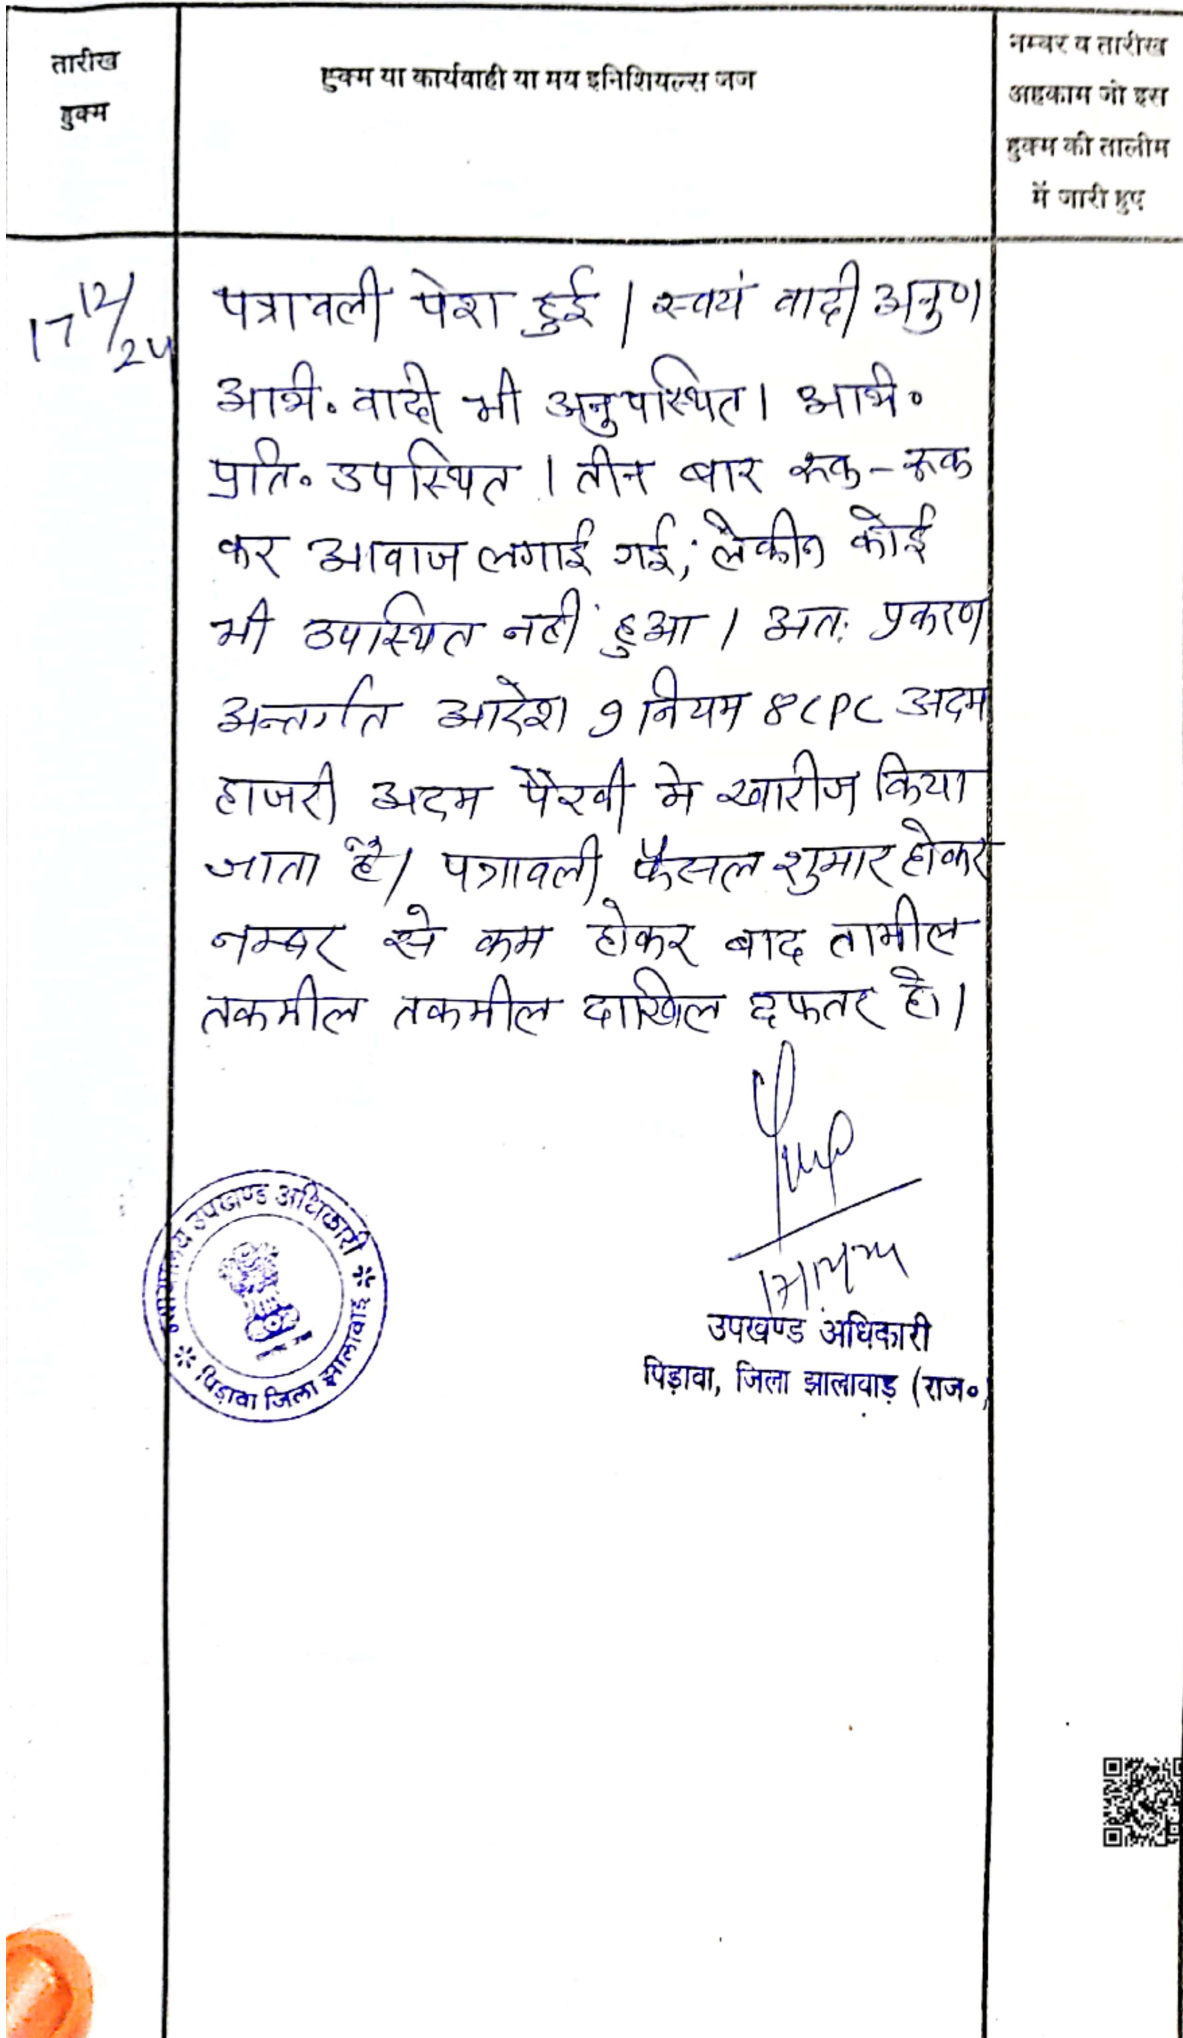 तारीख
हुक्म
हुक्म या कार्यवाही या मय इनिशियल्स जज
नम्बर व तारीख
अहकाम जो इस
हुक्म की तालीम
में जारी हुए
17/12/24
पत्रावली पेश हुई। स्वयं वादी अनु०
अभि. वादी भी अनुपस्थित। अभि.
प्रति. उपस्थित। तीन बार रूक-रूक
कर आवाज लगाई गई, लेकीन कोई
भी उपस्थित नहीं हुआ। अतः प्रकरण
अन्तर्गत आदेश 9 नियम 8 CPC अदम
हाजरी अदम पैरवी मे खारीज किया
जाता है। पत्रावली फैसल शुमार होकर
नम्बर से कम होकर बाद तामील
तकमील तकमील दाखिल दफतर हो।
उपखण्ड अधिकारी
पिड़ावा, जिला झालावाड़ (राज०)
उपखण्ड अधिकारी
पिड़ावा जिला झालावाड़